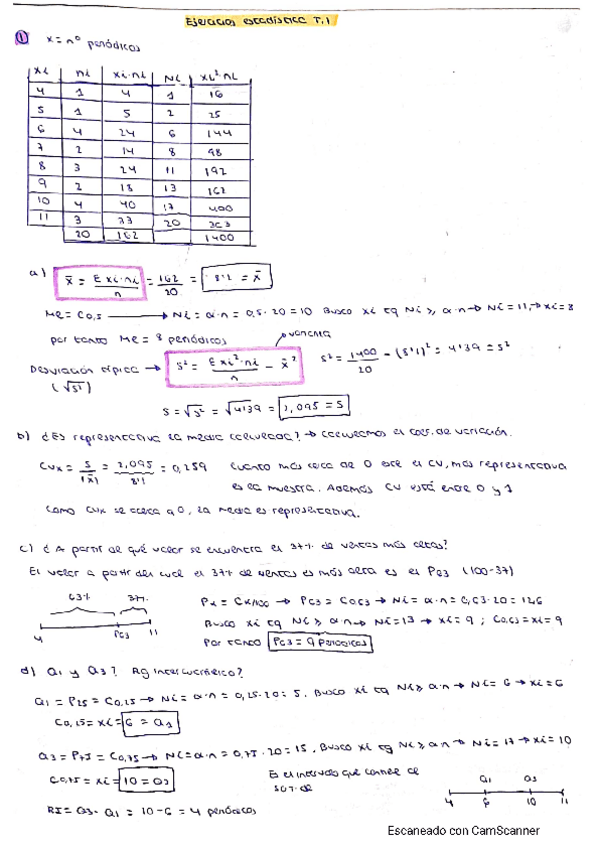 Ejercicios estadística T.1
① X = nº periódicos
xi ni xi·ni Ni xi²·ni
4 1 4 1 16
5 1 5 2 25
6 4 24 6 144
7 2 14 8 98
8 3 24 11 192
9 2 18 13 162
10 4 40 17 400
11 3 33 20 363
20 162 1400
a) x̄ = Σ xi·ni / n = 162 / 20 = 8'1 = x̄
Me = C0,5 → Ni = α·n = 0,5·20 = 10 Busco xi tq Ni ≥ α·n → Ni = 11 → xi = 8
por tanto Me = 8 periódicos
varianza
Desviación típica → S² = Σ xi²·ni / n - x̄² S² = 1400 / 20 - (8'1)² = 4'39 = S²
(√S²)
S = √S² = √4'39 = 2,095 = S
b) ¿Es representativa la media calculada? → calculamos el coef. de variación.
CVx = S / |x̄| = 2,095 / 8'1 = 0,259 Cuanto más cerca de 0 esté el CV, más representativa
es la muestra. Además CV está entre 0 y 1
Como CVx se acerca a 0, la media es representativa.
c) ¿A partir de qué valor se encuentra el 37% de ventas más altas?
El valor a partir del cual el 37% de ventas es más alta es el P63 (100-37)
63% 37%
4 P63 11
Pα = Cα/100 → P63 = C0,63 → Ni = α·n = 0,63·20 = 12,6
Busco xi tq Ni ≥ α·n → Ni = 13 → xi = 9 ; C0,63 = xi = 9
Por tanto P63 = 9 periódicos
d) Q1 y Q3? Rg intercuartílico?
Q1 = P25 = C0,25 → Ni = α·n = 0,25·20 = 5, Busco xi tq Ni ≥ α·n → Ni = 6 → xi = 6
C0,25 = xi = 6 = Q1
Q3 = P75 = C0,75 → Ni = α·n = 0,75·20 = 15, Busco xi tq Ni ≥ α·n → Ni = 17 → xi = 10
C0,75 = xi = 10 = Q3
Es el intervalo que contiene el
50% de
Q1 Q3
4 6 10 11
RI = Q3 - Q1 = 10 - 6 = 4 periódicos
Escaneado con CamScanner